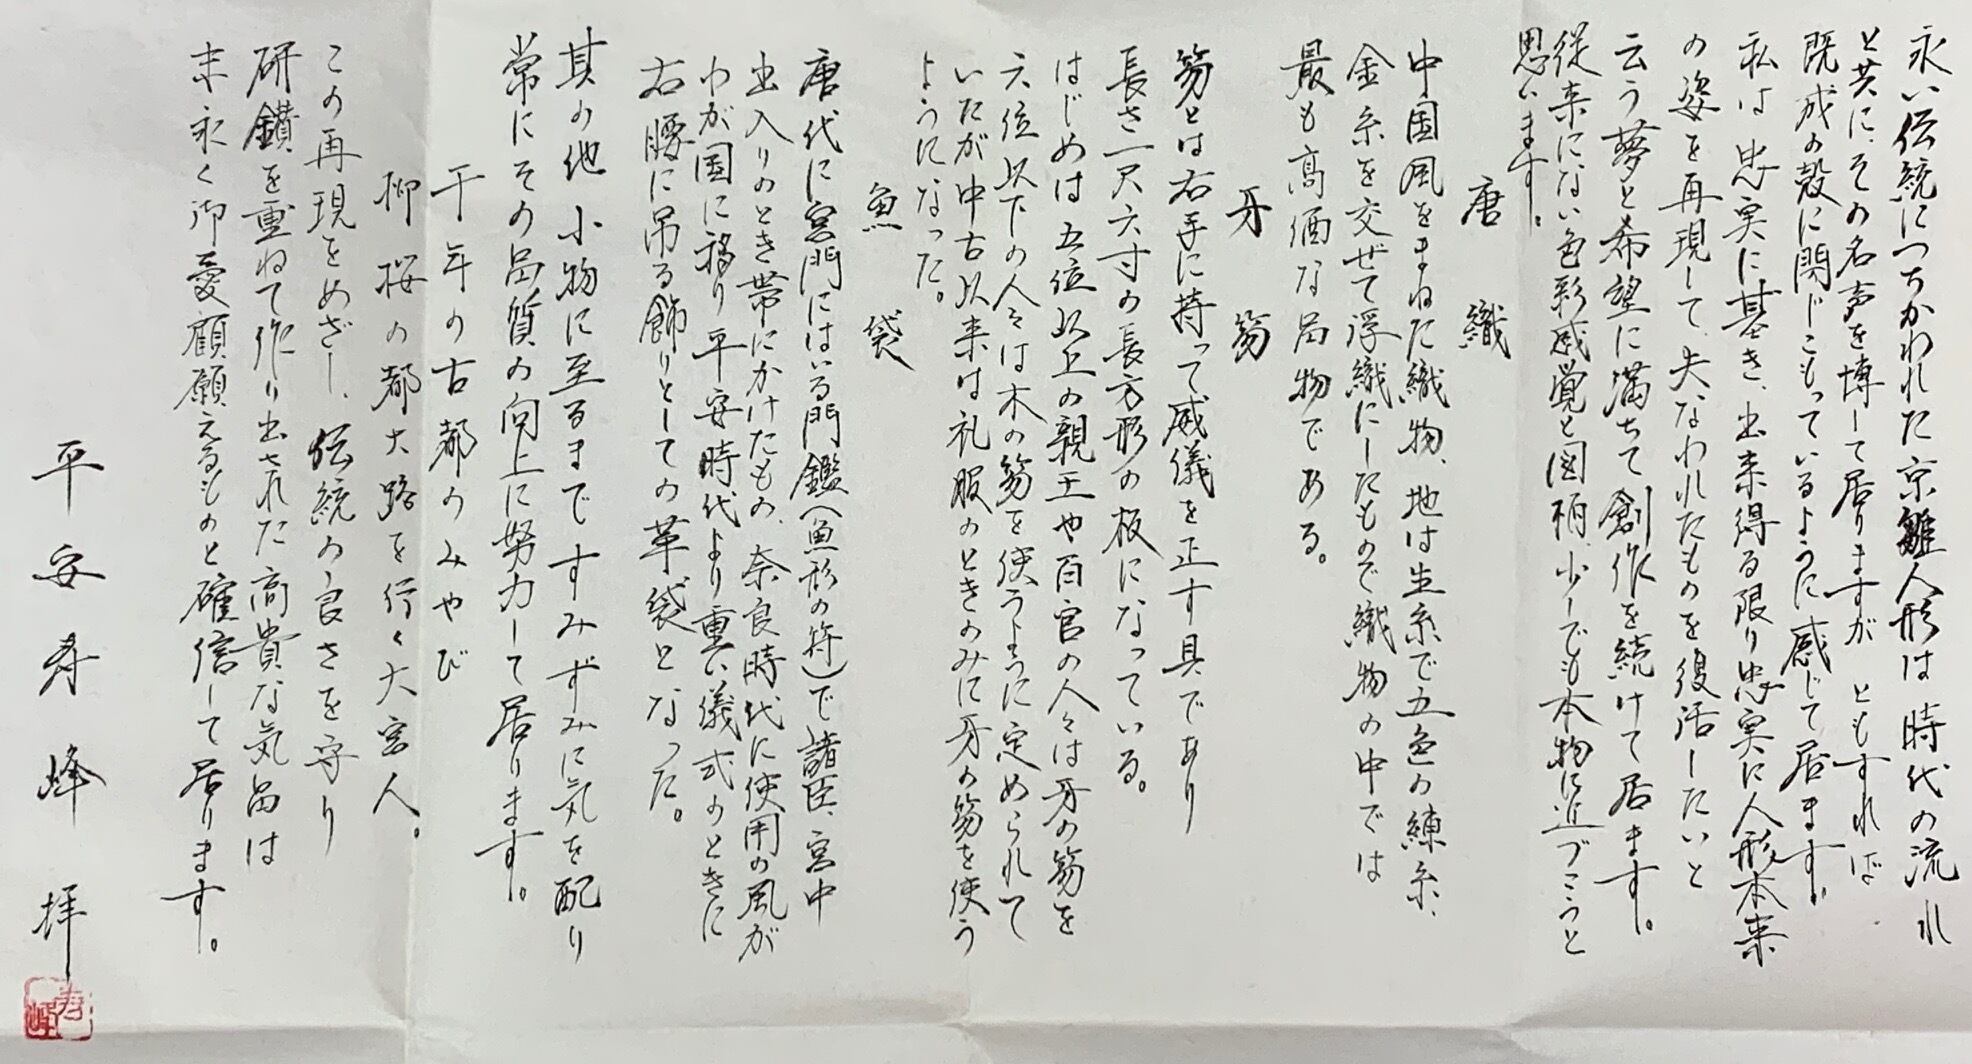 永い伝統につちかわれた京雛人形は時代の流れ
と共に、その名声を博して居りますが ともすれば
既成の殻に閉じこもっているように感じて居ます。
私は忠実に基き、出来得る限り忠実に人形本来
の姿を再現して、失なわれたものを復活したいと
云う夢と希望に満ちて創作を続けて居ます。
従来にない色彩感覚と図柄、少しでも本物に近づこうと
思います。
唐織
中国風をまねた織物、地は生糸で五色の練糸、
金糸を交ぜて浮織にしたもので織物の中では
最も高価な品物である。
牙笏
笏とは右手に持って威儀を正す具であり
長さ一尺六寸の長方形の板になっている。
はじめは五位以上の親王や百官の人々は牙の笏を
六位以下の人々は木の笏を使うように定められて
いたが中古以来は礼服のときのみに牙の笏を使う
ようになった。
魚袋
唐代に宮門にはいる門鑑(魚形の符)で諸臣、宮中
出入りのとき帯にかけたもの、奈良時代に使用の風が
わが国に移り平安時代より重い儀式のときに
右腰に吊る飾りとしての革袋となった。
其の他 小物に至るまですみずみに気を配り
常にその品質の向上に努力して居ります。
千年の古都のみやび
柳桜の都大路を行く大宮人。
この再現をめざし、伝統の良さを守り
研鑚を重ねて作り出された高貴な気品は
末永く御愛顧願えるものと確信して居ります。
平安寿峰 拝
寿峰